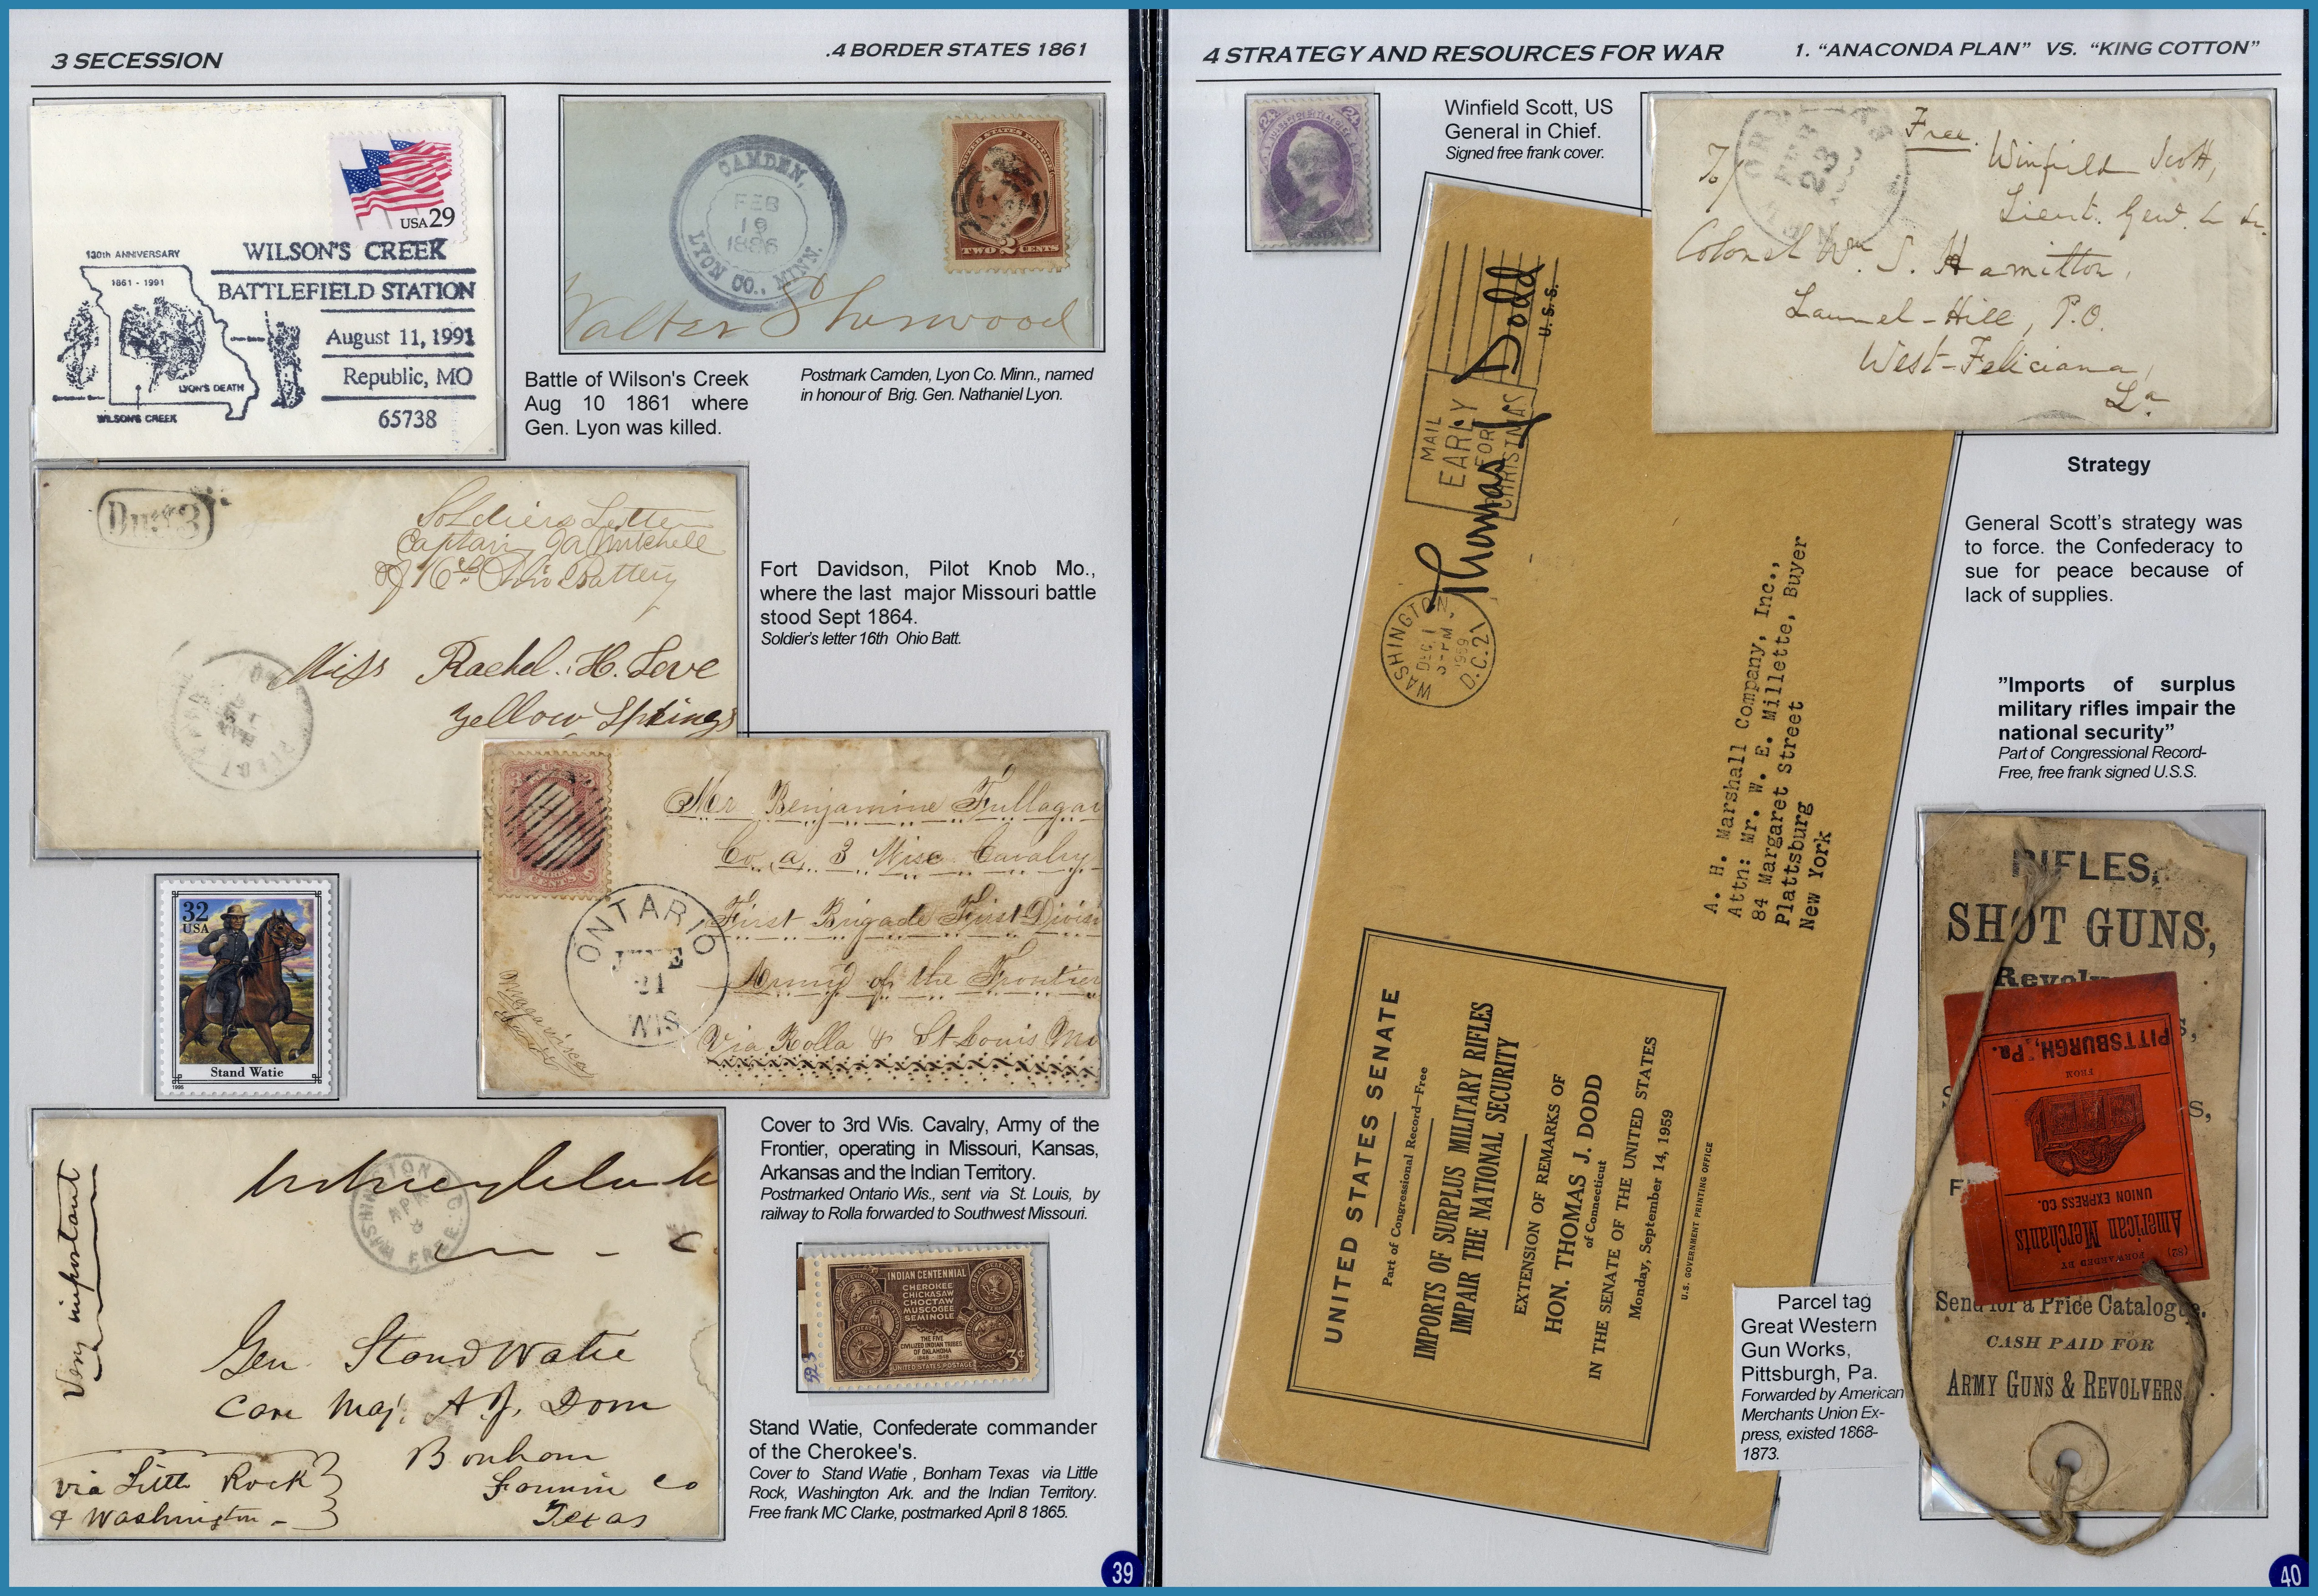 3 SECESSION
.4 BORDER STATES 1861
USA 29
130th ANNIVERSARY
1861 - 1991
LYON'S DEATH
WILSON'S CREEK
WILSON'S CREEK
BATTLEFIELD STATION
August 11, 1991
Republic, MO
65738
CAMDEN,
FEB
19
1886
LYON CO., MINN.
UNITED STATES POSTAGE
TWO 2 CENTS
Walter Sherwood
Battle of Wilson's Creek
Aug 10 1861 where
Gen. Lyon was killed.
Postmark Camden, Lyon Co. Minn., named
in honour of Brig. Gen. Nathaniel Lyon.
Due 3
Soldiers Letter
Captain Ja Mitchell
of 16th Ohio Battery
Miss Rachel. H. Love
Yellow Springs
PILOT
Fort Davidson, Pilot Knob Mo.,
where the last major Missouri battle
stood Sept 1864.
Soldier's letter 16th Ohio Batt.
CENTS
ONTARIO
JUNE
21
WIS
Mr Benjamine Fullagar
Co. a. 3 Wisc. Cavalry
First Brigade First Divisi
Army of the Frontier
Via Rolla & St Louis Mo
32
USA
Stand Watie
1995
Cover to 3rd Wis. Cavalry, Army of the
Frontier, operating in Missouri, Kansas,
Arkansas and the Indian Territory.
Postmarked Ontario Wis., sent via St. Louis, by
railway to Rolla forwarded to Southwest Missouri.
Very important
WASHINGTON D.C.
APR
8
FREE
Gen. Stand Watie
Care Maj. A. J. Dorn
Bonham
Fannin Co
Texas
via Little Rock
& Washington -
INDIAN CENTENNIAL
CHEROKEE
CHICKASAW
CHOCTAW
MUSCOGEE
SEMINOLE
THE FIVE
CIVILIZED INDIAN TRIBES
OF OKLAHOMA
1848 - 1948
UNITED STATES POSTAGE
3¢
Stand Watie, Confederate commander
of the Cherokee's.
Cover to Stand Watie , Bonham Texas via Little
Rock, Washington Ark. and the Indian Territory.
Free frank MC Clarke, postmarked April 8 1865.
39
4 STRATEGY AND RESOURCES FOR WAR
1. “ANACONDA PLAN” VS. “KING COTTON”
24
24
Winfield Scott, US
General in Chief.
Signed free frank cover.
FEB
23
Free.
Winfield Scott,
Lieut. Genl.
To/
Colonel Wm. S. Hamilton,
Laurel-Hill, P.O.
West-Feliciana,
La.
MAIL
EARLY
FOR
CHRISTMAS
Thomas J Dodd
U.S.S.
WASHINGTON,
DEC 1
1959
D.C. 21
A. H. Marshall Company, Inc.,
Attn: Mr. W. E. Millette, Buyer
84 Margaret Street
Plattsburg
New York
UNITED STATES SENATE
Part of Congressional Record—Free
IMPORTS OF SURPLUS MILITARY RIFLES
IMPAIR THE NATIONAL SECURITY
EXTENSION OF REMARKS OF
HON. THOMAS J. DODD
of Connecticut
IN THE SENATE OF THE UNITED STATES
Monday, September 14, 1959
U.S. GOVERNMENT PRINTING OFFICE
Strategy
General Scott's strategy was
to force. the Confederacy to
sue for peace because of
lack of supplies.
”Imports of surplus
military rifles impair the
national security”
Part of Congressional Record-
Free, free frank signed U.S.S.
RIFLES,
SHOT GUNS,
Revolv
(82) FORWARDED BY
American Merchants
UNION EXPRESS CO.
FROM
PITTSBURGH, Pa.
Send for a Price Catalogue.
CASH PAID FOR
ARMY GUNS & REVOLVERS
Parcel tag
Great Western
Gun Works,
Pittsburgh, Pa.
Forwarded by American
Merchants Union Ex-
press, existed 1868-
1873.
40